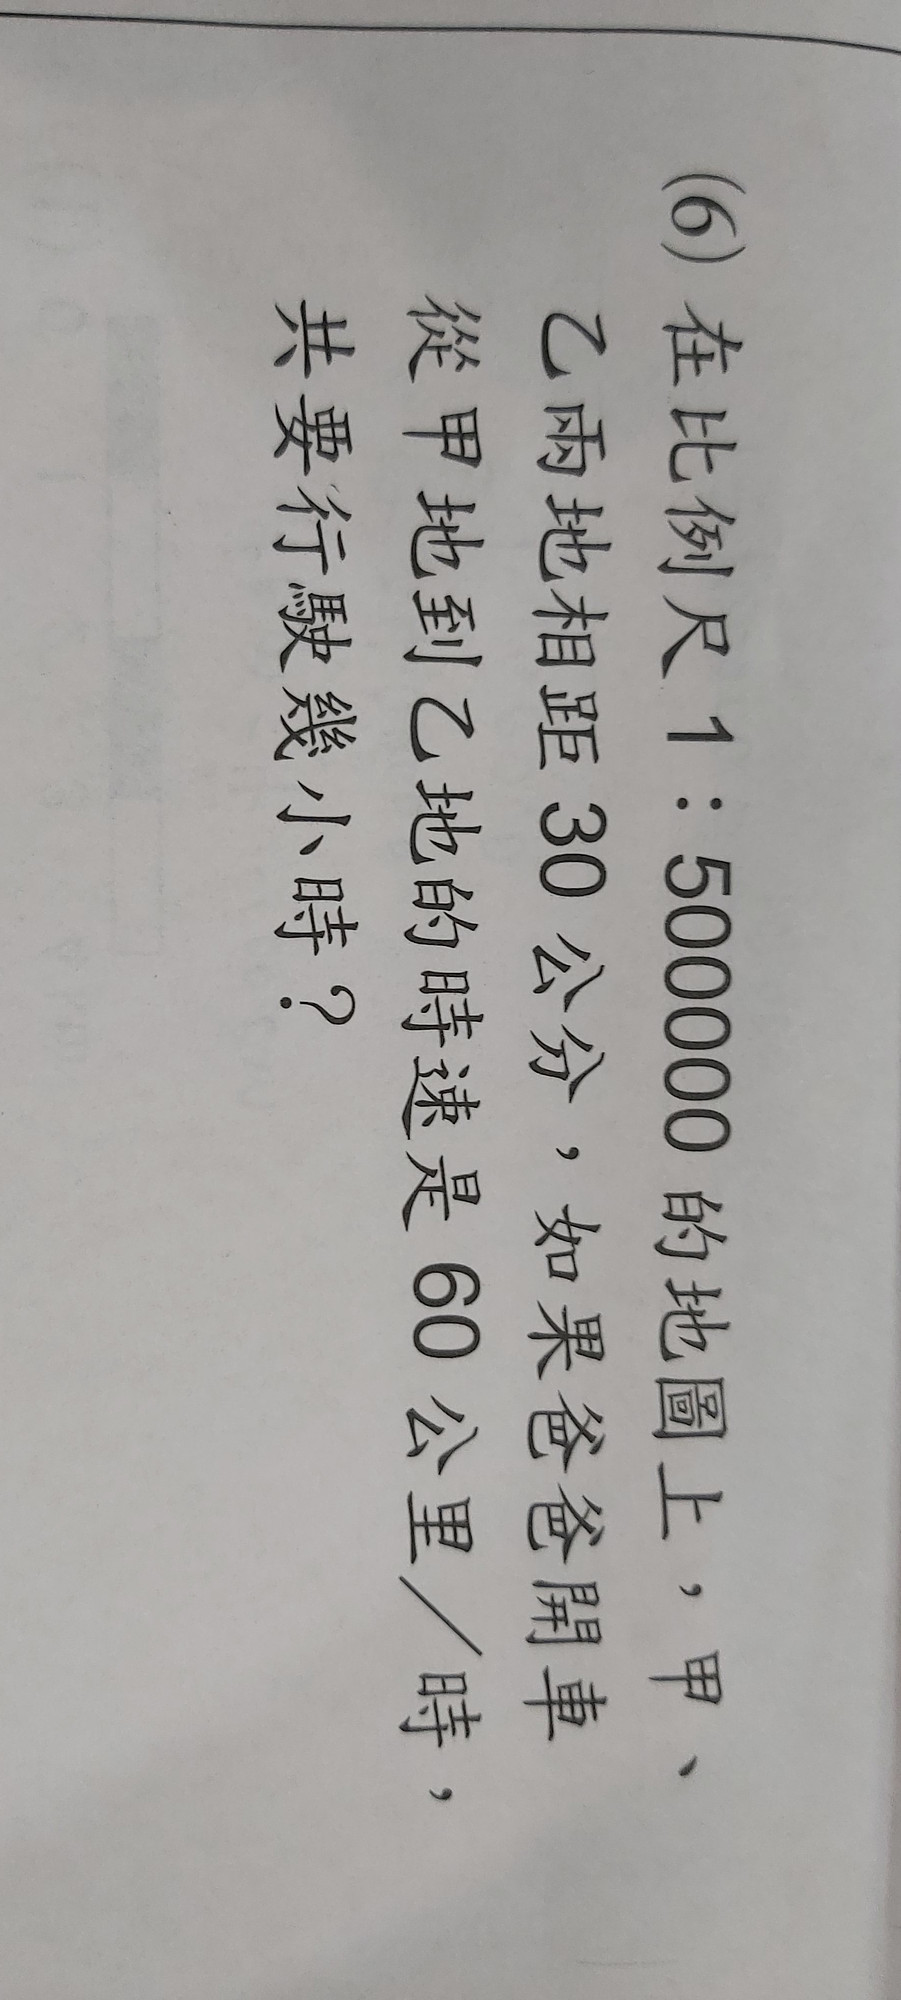 (6) 在比例尺 1：500000 的地圖上，甲、
乙兩地相距 30 公分，如果爸爸開車
從甲地到乙地的時速是 60 公里／時，
共要行駛幾小時？